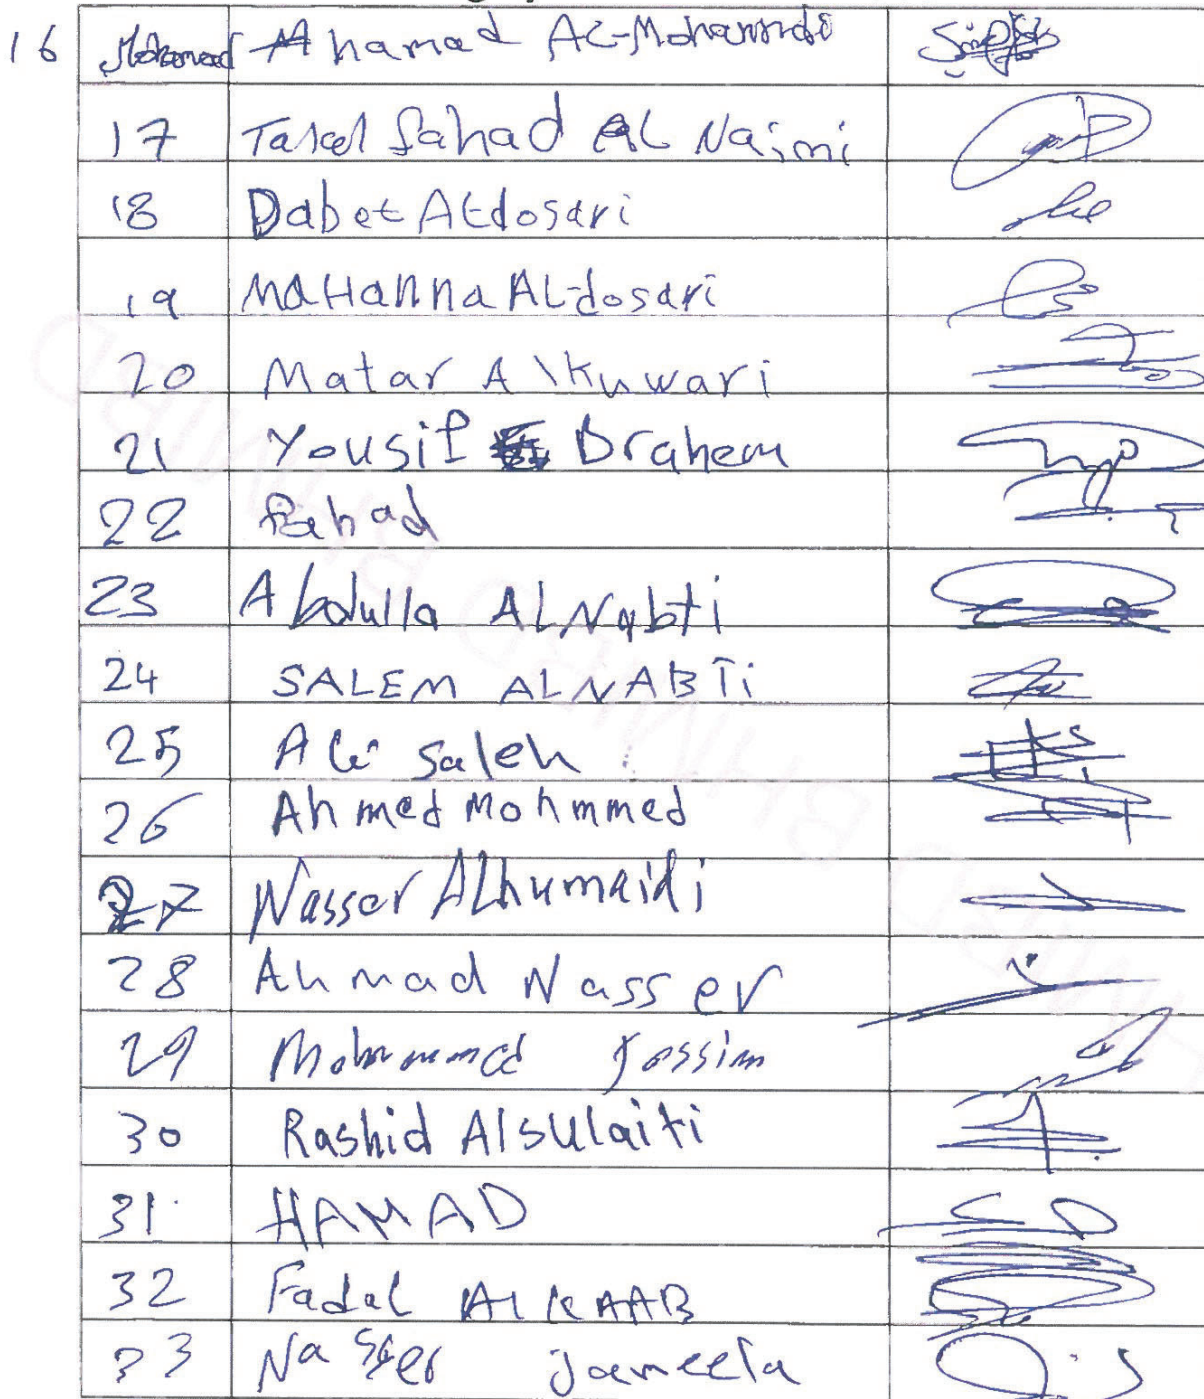 16 Mohamad Ahamad AL-Mohannadi
17 Talal fahad AL Naimi
18 Dabet ALdosari
19 MaHanna AL-dosari
20 Matar Alkuwari
21 Yousif Brahem
22 Fahad
23 Abdulla ALNabti
24 SALEM ALNABTi
25 Ali saleh
26 Ahmed Mohmmed
27 Nasser ALhumaidi
28 Ahmad Nasser
29 Mohmmed Jassim
30 Rashid Alsulaiti
31 HAMAD
32 Fadal ALKAAB
33 Nasser jameela